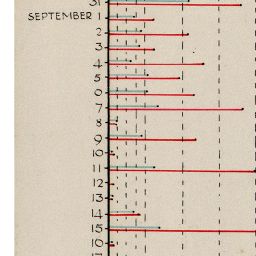 31
SEPTEMBER 1
2
3
4
5
6
7
8
9
10
11
12
13
14
15
16
17